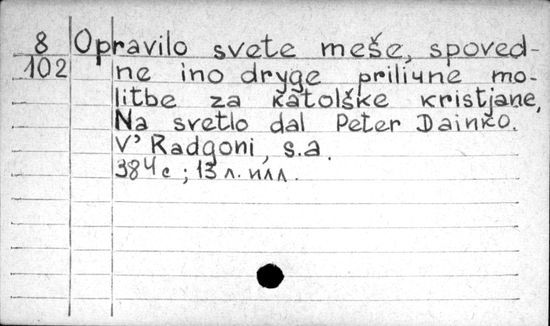 8 Opravilo svete meše, spoved-
102 ne ino dryge priliчne mo-
litbe za katolške kristjane,
Na svetlo dal Peter Dainko.
V' Radgoni, s.a.
384 с; 13 л. илл.